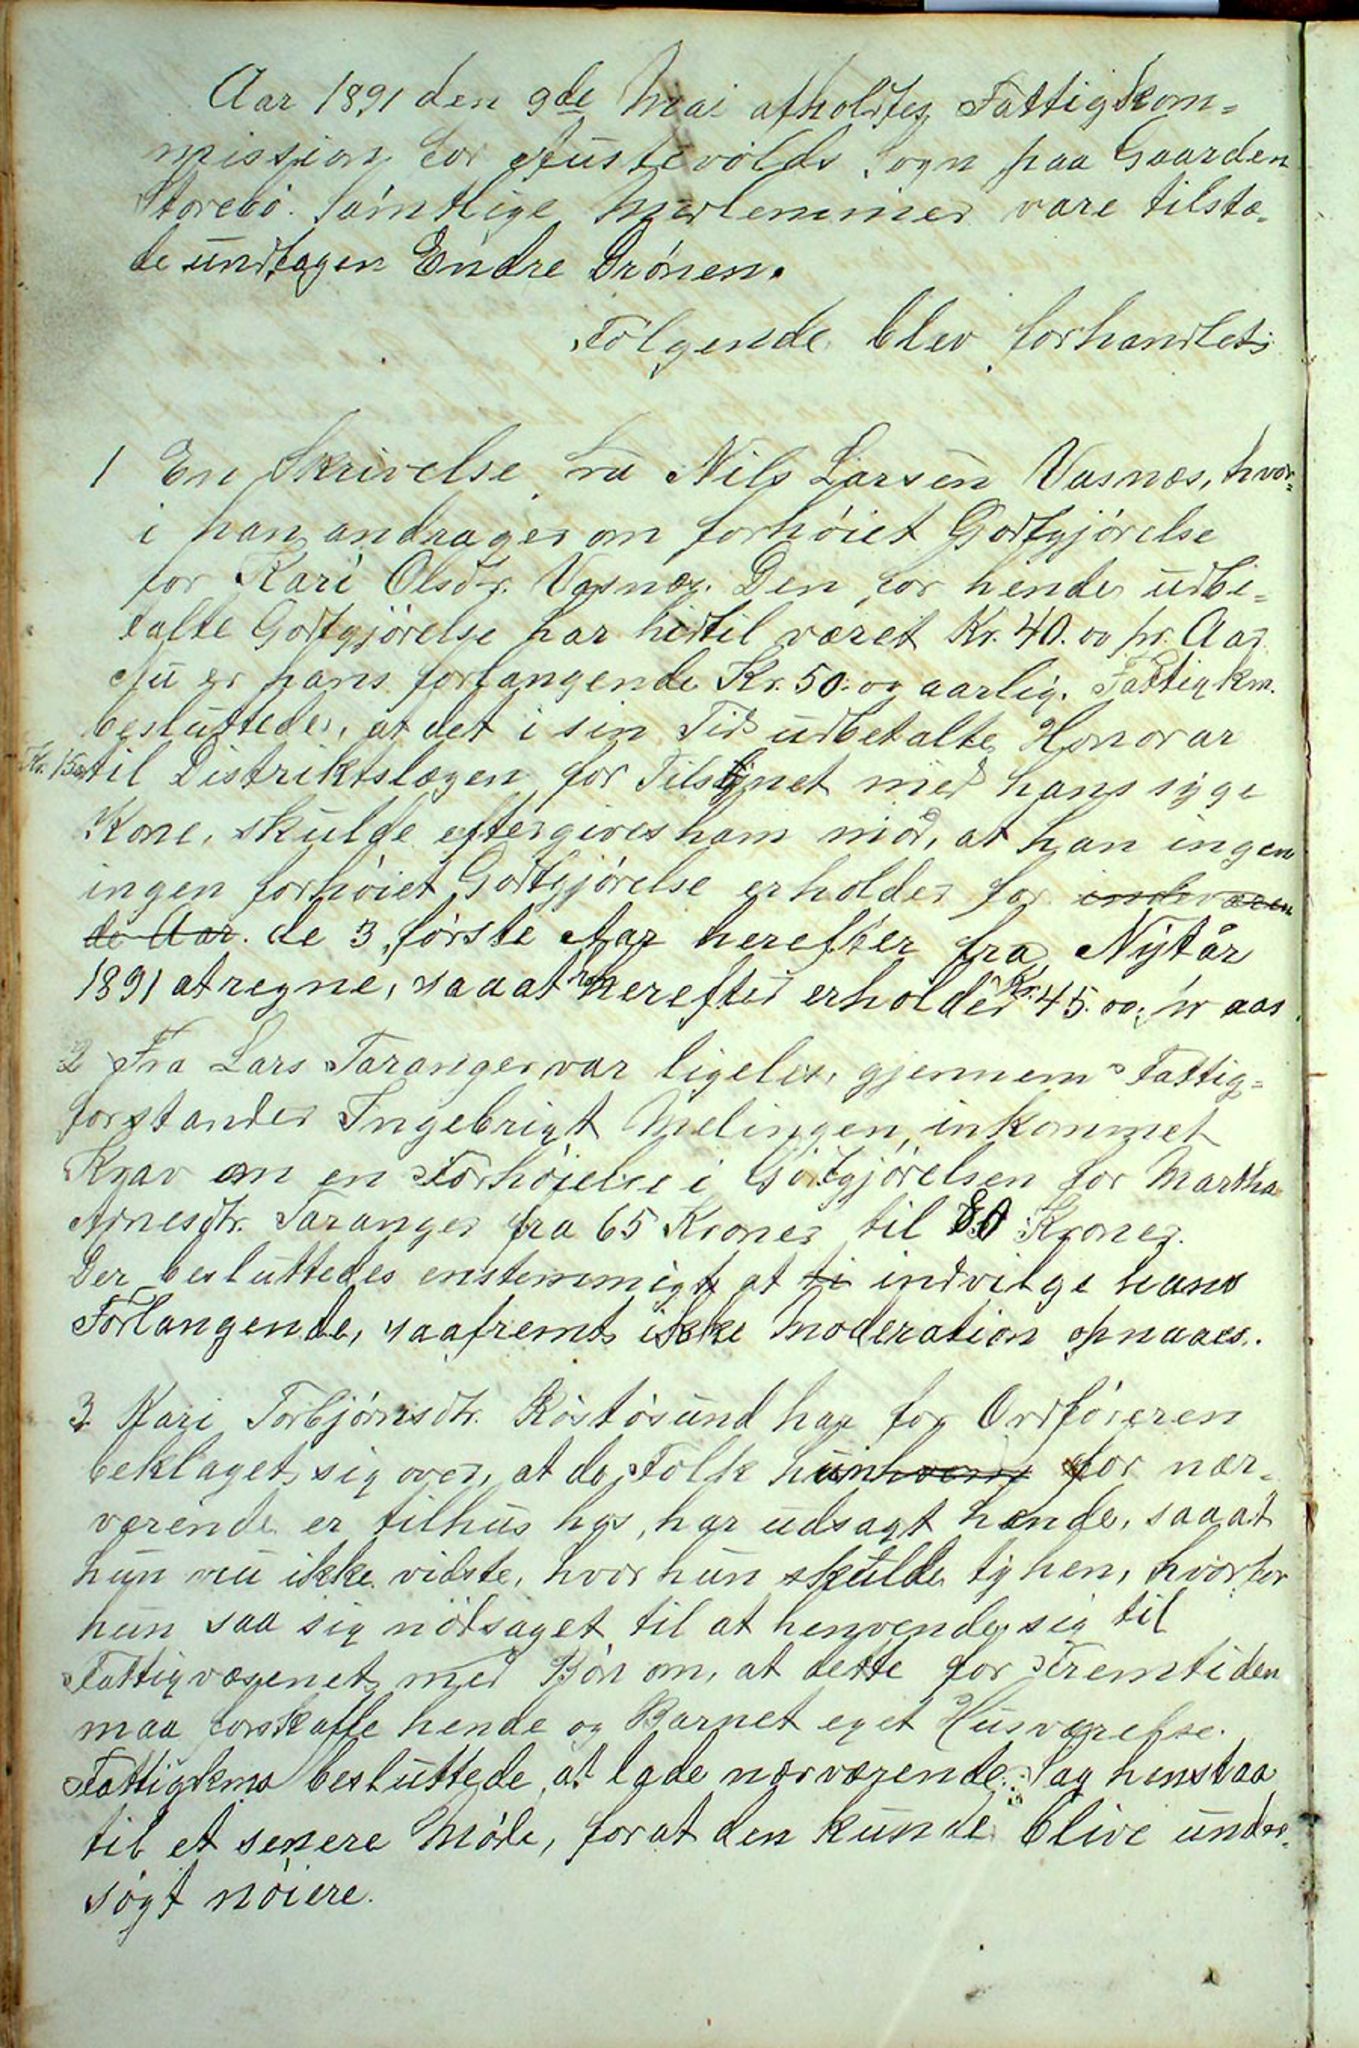 Aar 1891 den 9de Mai afholdtes Fattigkom-
mission for Austevolds Sogn paa Gaarden
Storebö. Samtlige Medlemmer vare tilstæ-
de undtagen Endre Drönen.
Følgende blev forhandlet:
1 En Skrivelse fra Nils Larsen Vasnæs, hvor-
i han andrager om forhöiet Godtgjörelse
for Kari Olsdtr. Vasnæs. Den for hende udbe-
talte Godtgjörelse har hidtil været Kr. 40.00 pr. Aar
Nu er hans forlangende Kr. 50.00 aarlig. Fattigkm.
besluttede, at det i sin Tid udbetalte Honorar
Kr. 15.00 til Distriktslægen for Tilsynet med hans syge
Kone, skulde eftergives ham mod, at han ingen
ingen forhöiet Godtgjörelse erholder for indeværen
de Aar. de 3 förste Aar herefter fra Nytår
1891 at regne, saaat han herefter erholder Kr. 45.00 pr aar.
2 Fra Lars Taranger var ligeledes, gjennem Fattig-
forstander Ingebrigt Melingen, inkommet
Krav om en Forhöielse i Godtgjörelsen for Martha
Arnesdtr. Taranger fra 65 Kroner til 80 Kroner.
Der besluttedes enstemmigt at ti indvilge hans
Forlangende, saafremt ikke Moderation opnaaes.
3. Kari Torbjörnsdtr. Röstösund har for Ordföreren
beklaget sig over, at de Folk hun hvem for nær-
værende er tilhus hos, har udsagt hende, saaat
hun nu ikke vidste, hvor hun skulde ty hen, hvorfor
hun saa sig nödsaget til at henvende sig til
Fattigvæsenet med Bön om, at dette for Fremtiden
maa forskaffe hende og Barnet eget Husværelse.
Fattigkms besluttede, at lade nærværende Sag henstaa
til et senere Möde, forat den kunde blive under-
sögt nöiere.